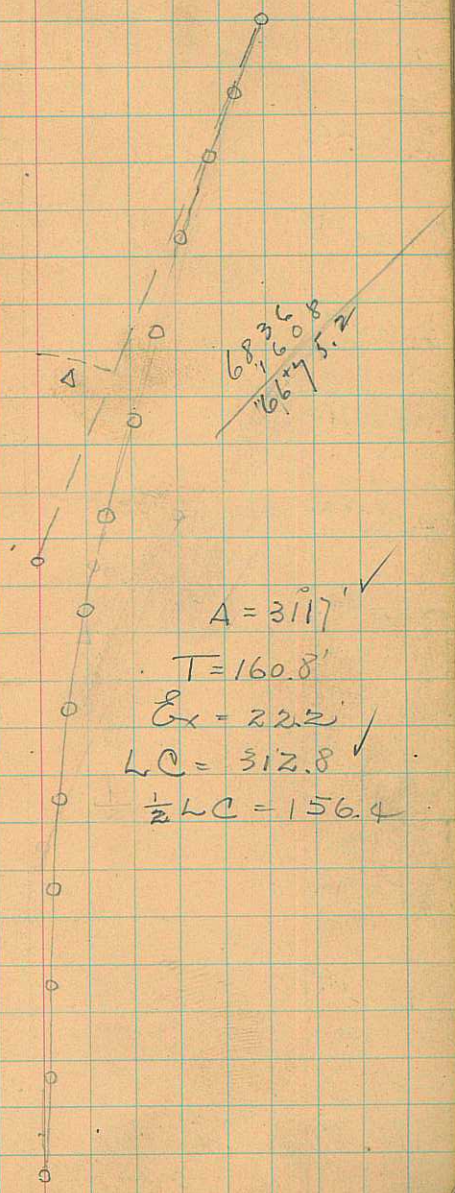 68,36
1608
66+75.2
Δ
Δ = 31°17' ✓
T = 160.8'
Ex = 22.2'
LC = 312.8 ✓
½ LC = 156.4